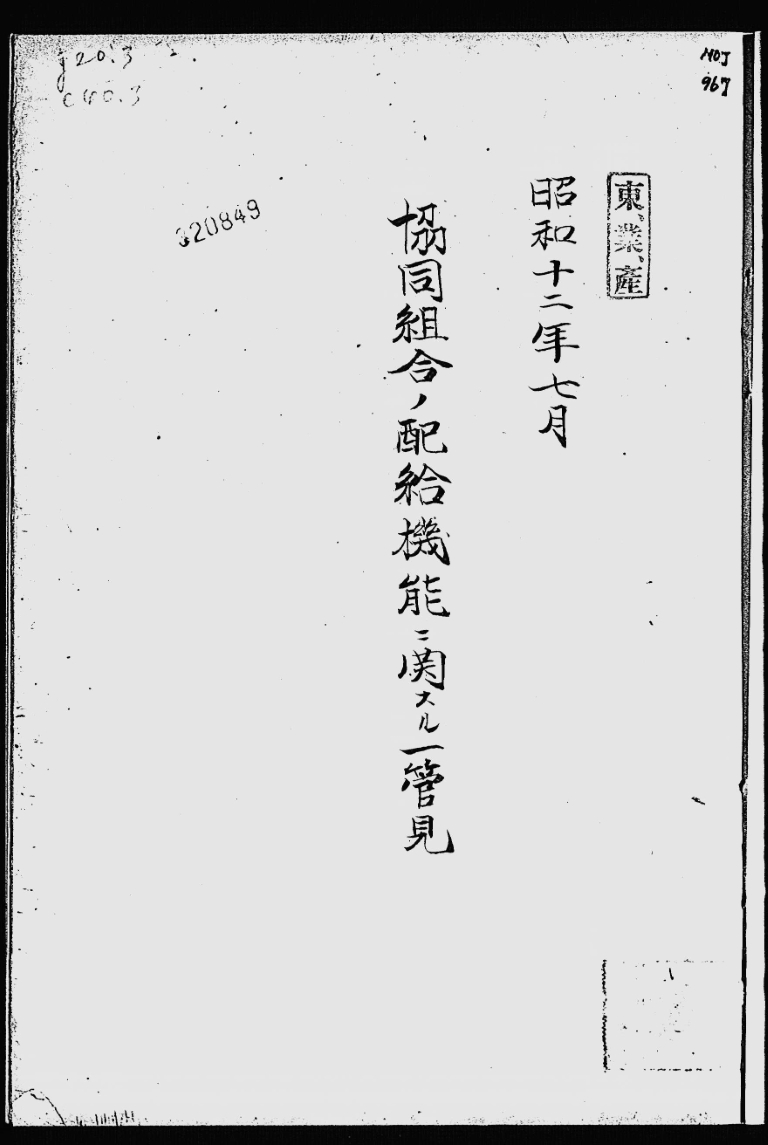 東、業、産
昭和十二年七月
協同組合ノ配給機能ニ関スル一管見
320849
MOJ
967